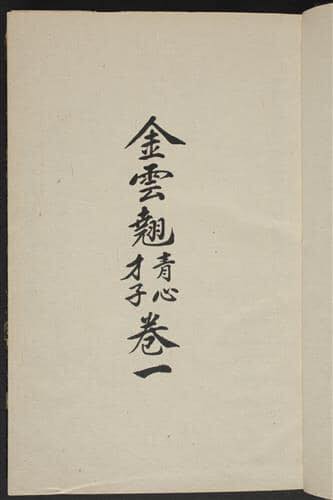 金雲翹
青心
才子
卷一